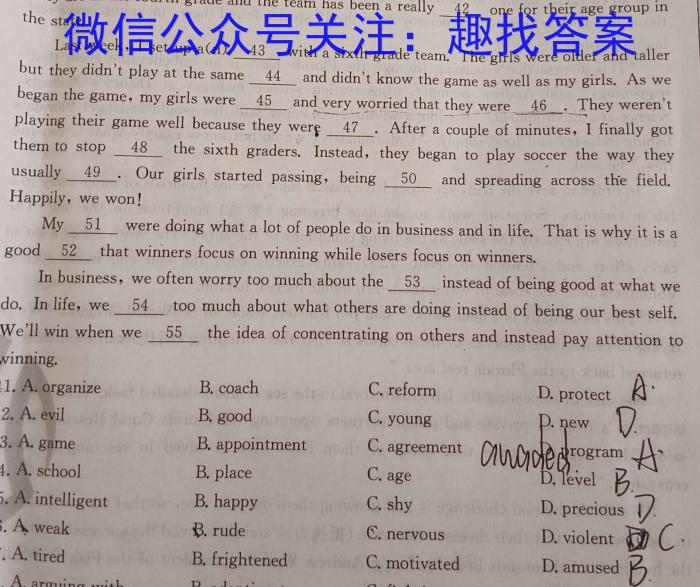 fourth grade and the team has been a really 42 one for their age group in
the state.
微信公众号关注：趣找答案
Last week, I set up a(n) 43 with a sixth grade team. The girls were older and taller
but they didn't play at the same 44 and didn't know the game as well as my girls. As we
began the game, my girls were 45 and very worried that they were 46 . They weren't
playing their game well because they were 47 . After a couple of minutes, I finally got
them to stop 48 the sixth graders. Instead, they began to play soccer the way they
usually 49 . Our girls started passing, being 50 and spreading across the field.
Happily, we won!
My 51 were doing what a lot of people do in business and in life. That is why it is a
good 52 that winners focus on winning while losers focus on winners.
In business, we often worry too much about the 53 instead of being good at what we
do. In life, we 54 too much about what others are doing instead of being our best self.
We'll win when we 55 the idea of concentrating on others and instead pay attention to
winning.
1. A. organize B. coach C. reform D. protect A.
2. A. evil B. good C. young D. new D.
3. A. game B. appointment C. agreement D. program A
4. A. school B. place C. age D. level B.
5. A. intelligent B. happy C. shy D. precious D.
A. weak B. rude C. nervous D. violent C.
A. tired B. frightened C. motivated D. amused B.
A. arguing with